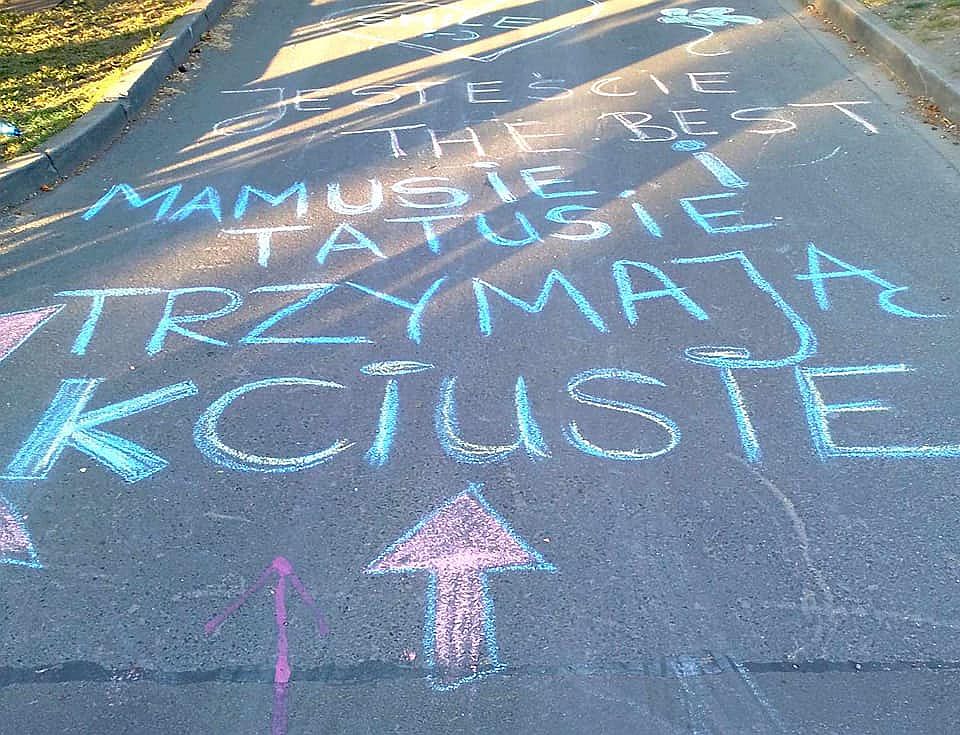 JESTEŚCIE
THE BEST
MAMUSIE I
TATUSIE
TRZYMAJĄ
KCIUSIE